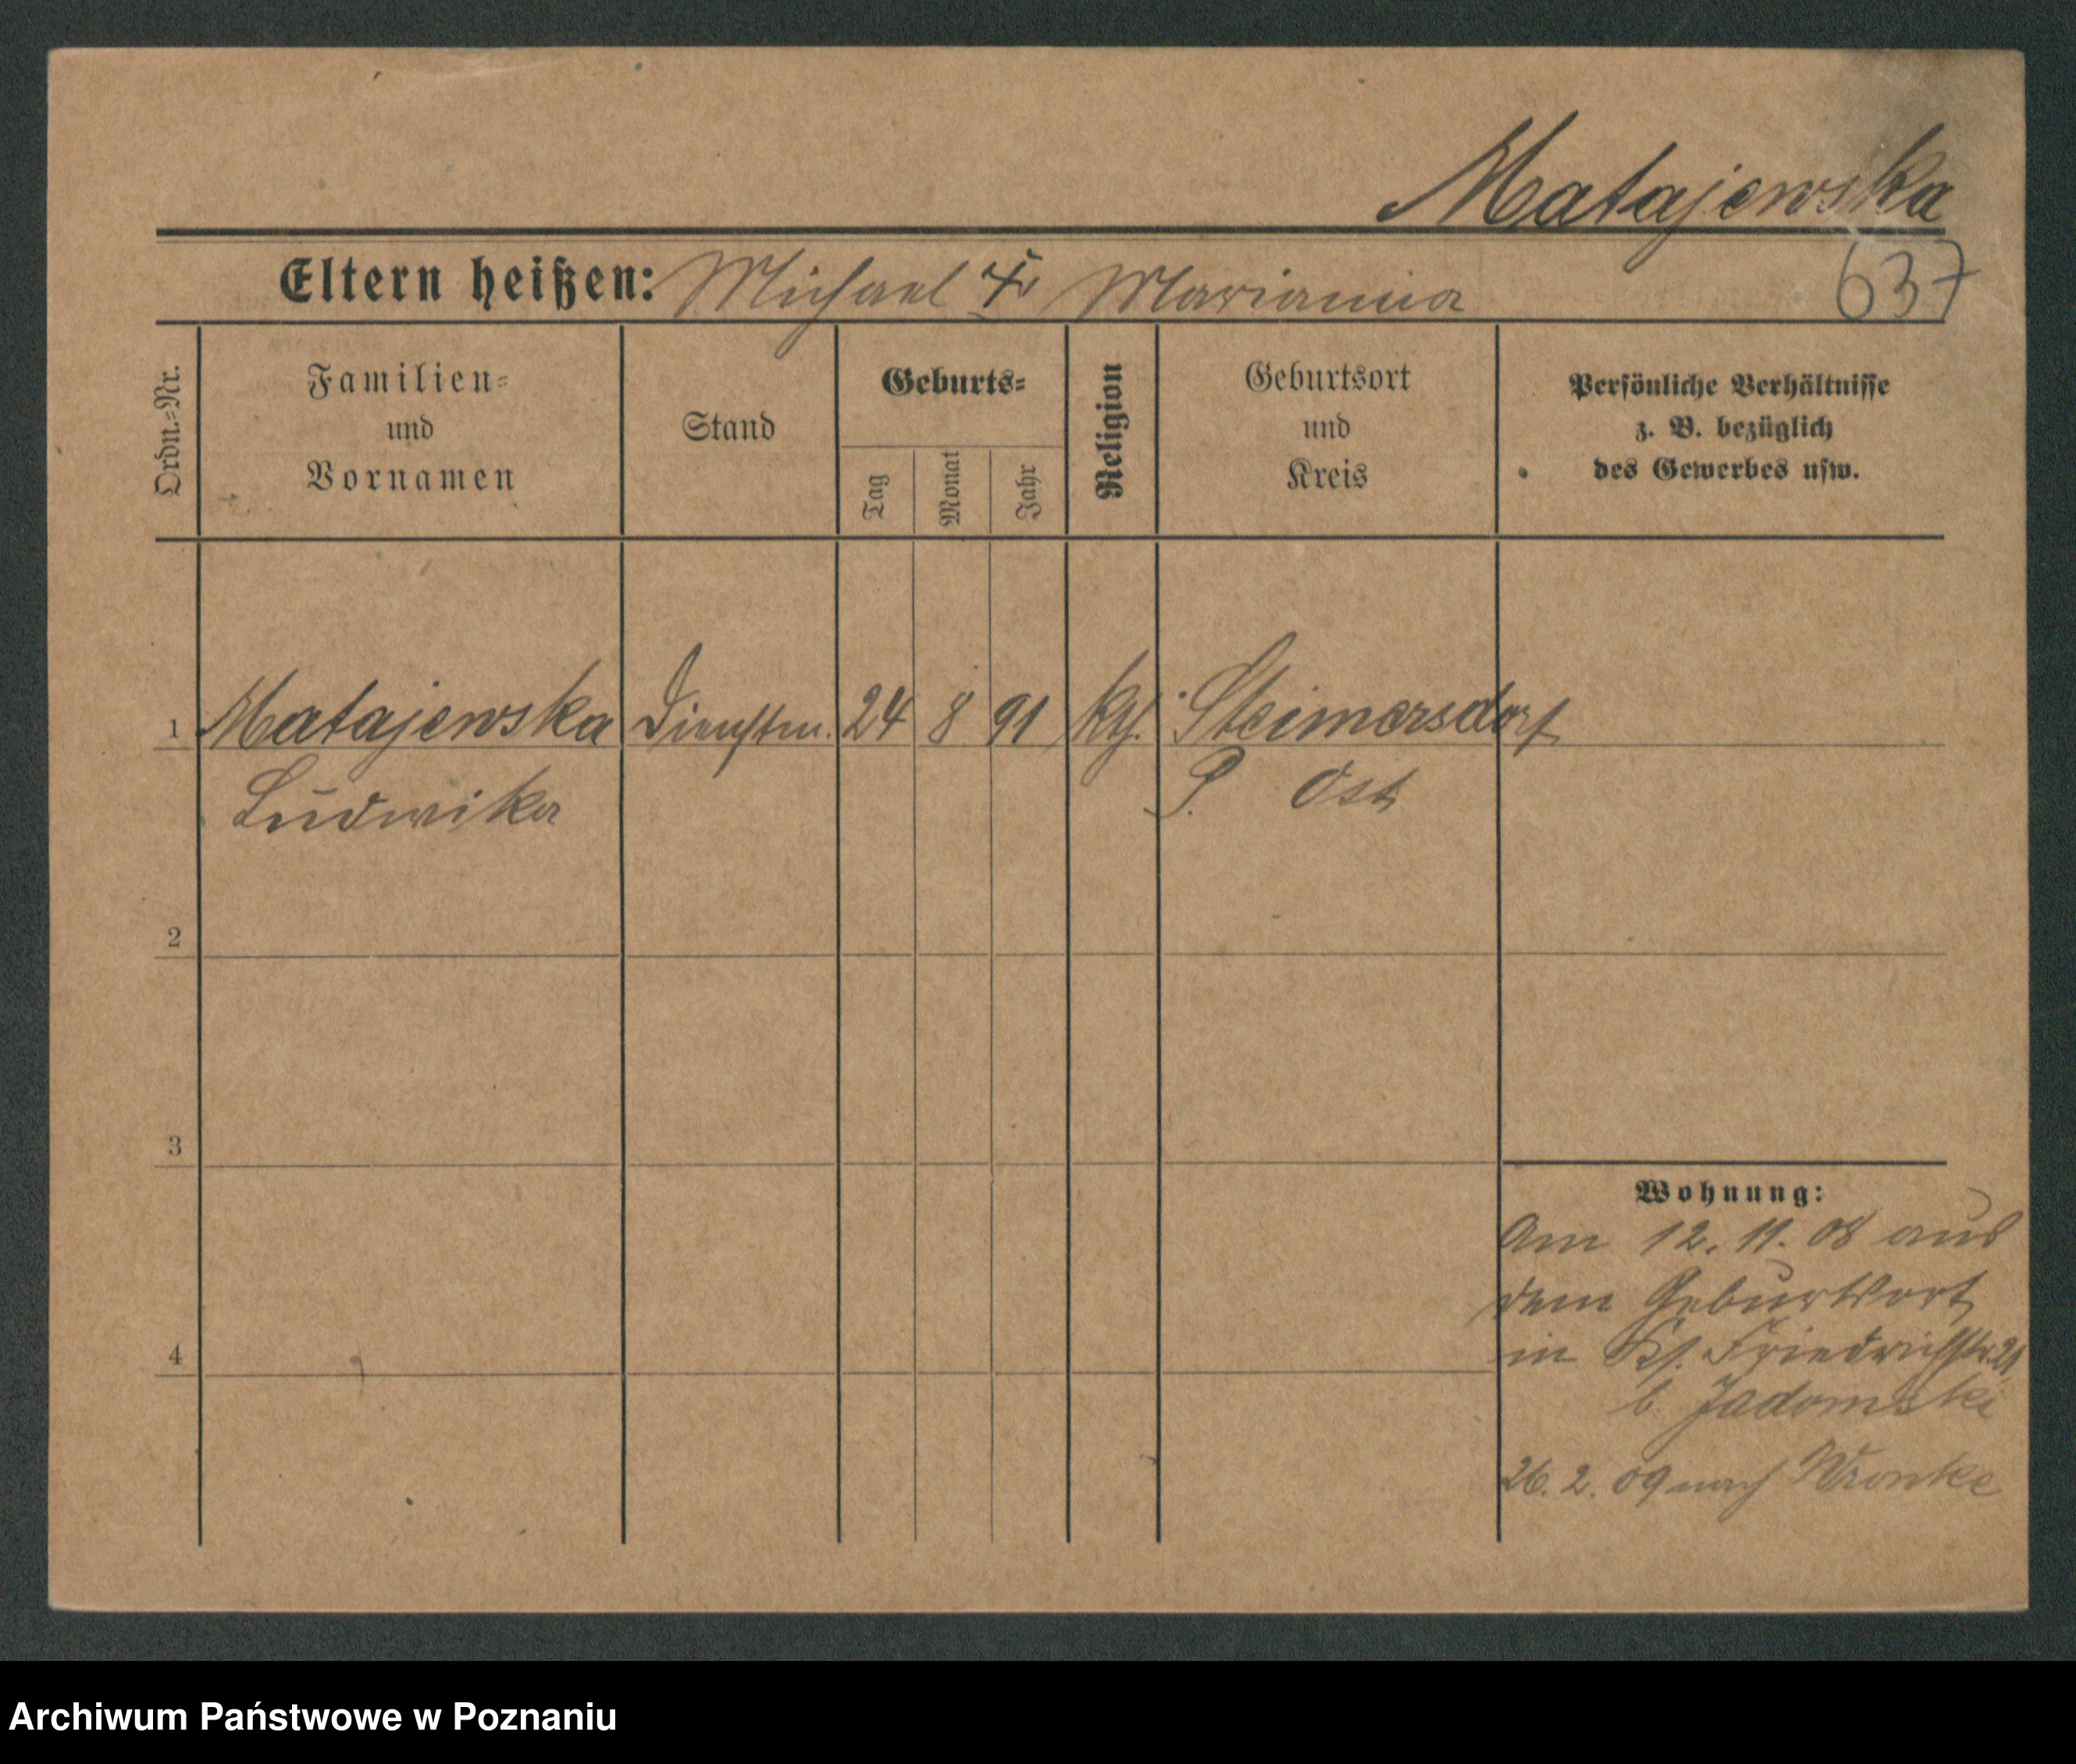 Matajewska
637
Eltern heißen: Michael u. Marianna
Ordn.=Nr.
Familien=
und
Vornamen
Stand
Geburts=
Tag
Monat
Jahr
Religion
Geburtsort
und
Kreis
Persönliche Verhältnisse
z. B. bezüglich
des Gewerbes usw.
1 Matajewska Dienstm. 24 8 91 kth. Steimersdorf
Ludwika P. Ost
2
3
4
Wohnung:
Am 12. 11. 08 aus
dem Geburtsort
in Friedrichstr. 21
b. Jadomski
26. 2. 09 nach Wronke
Archiwum Państwowe w Poznaniu